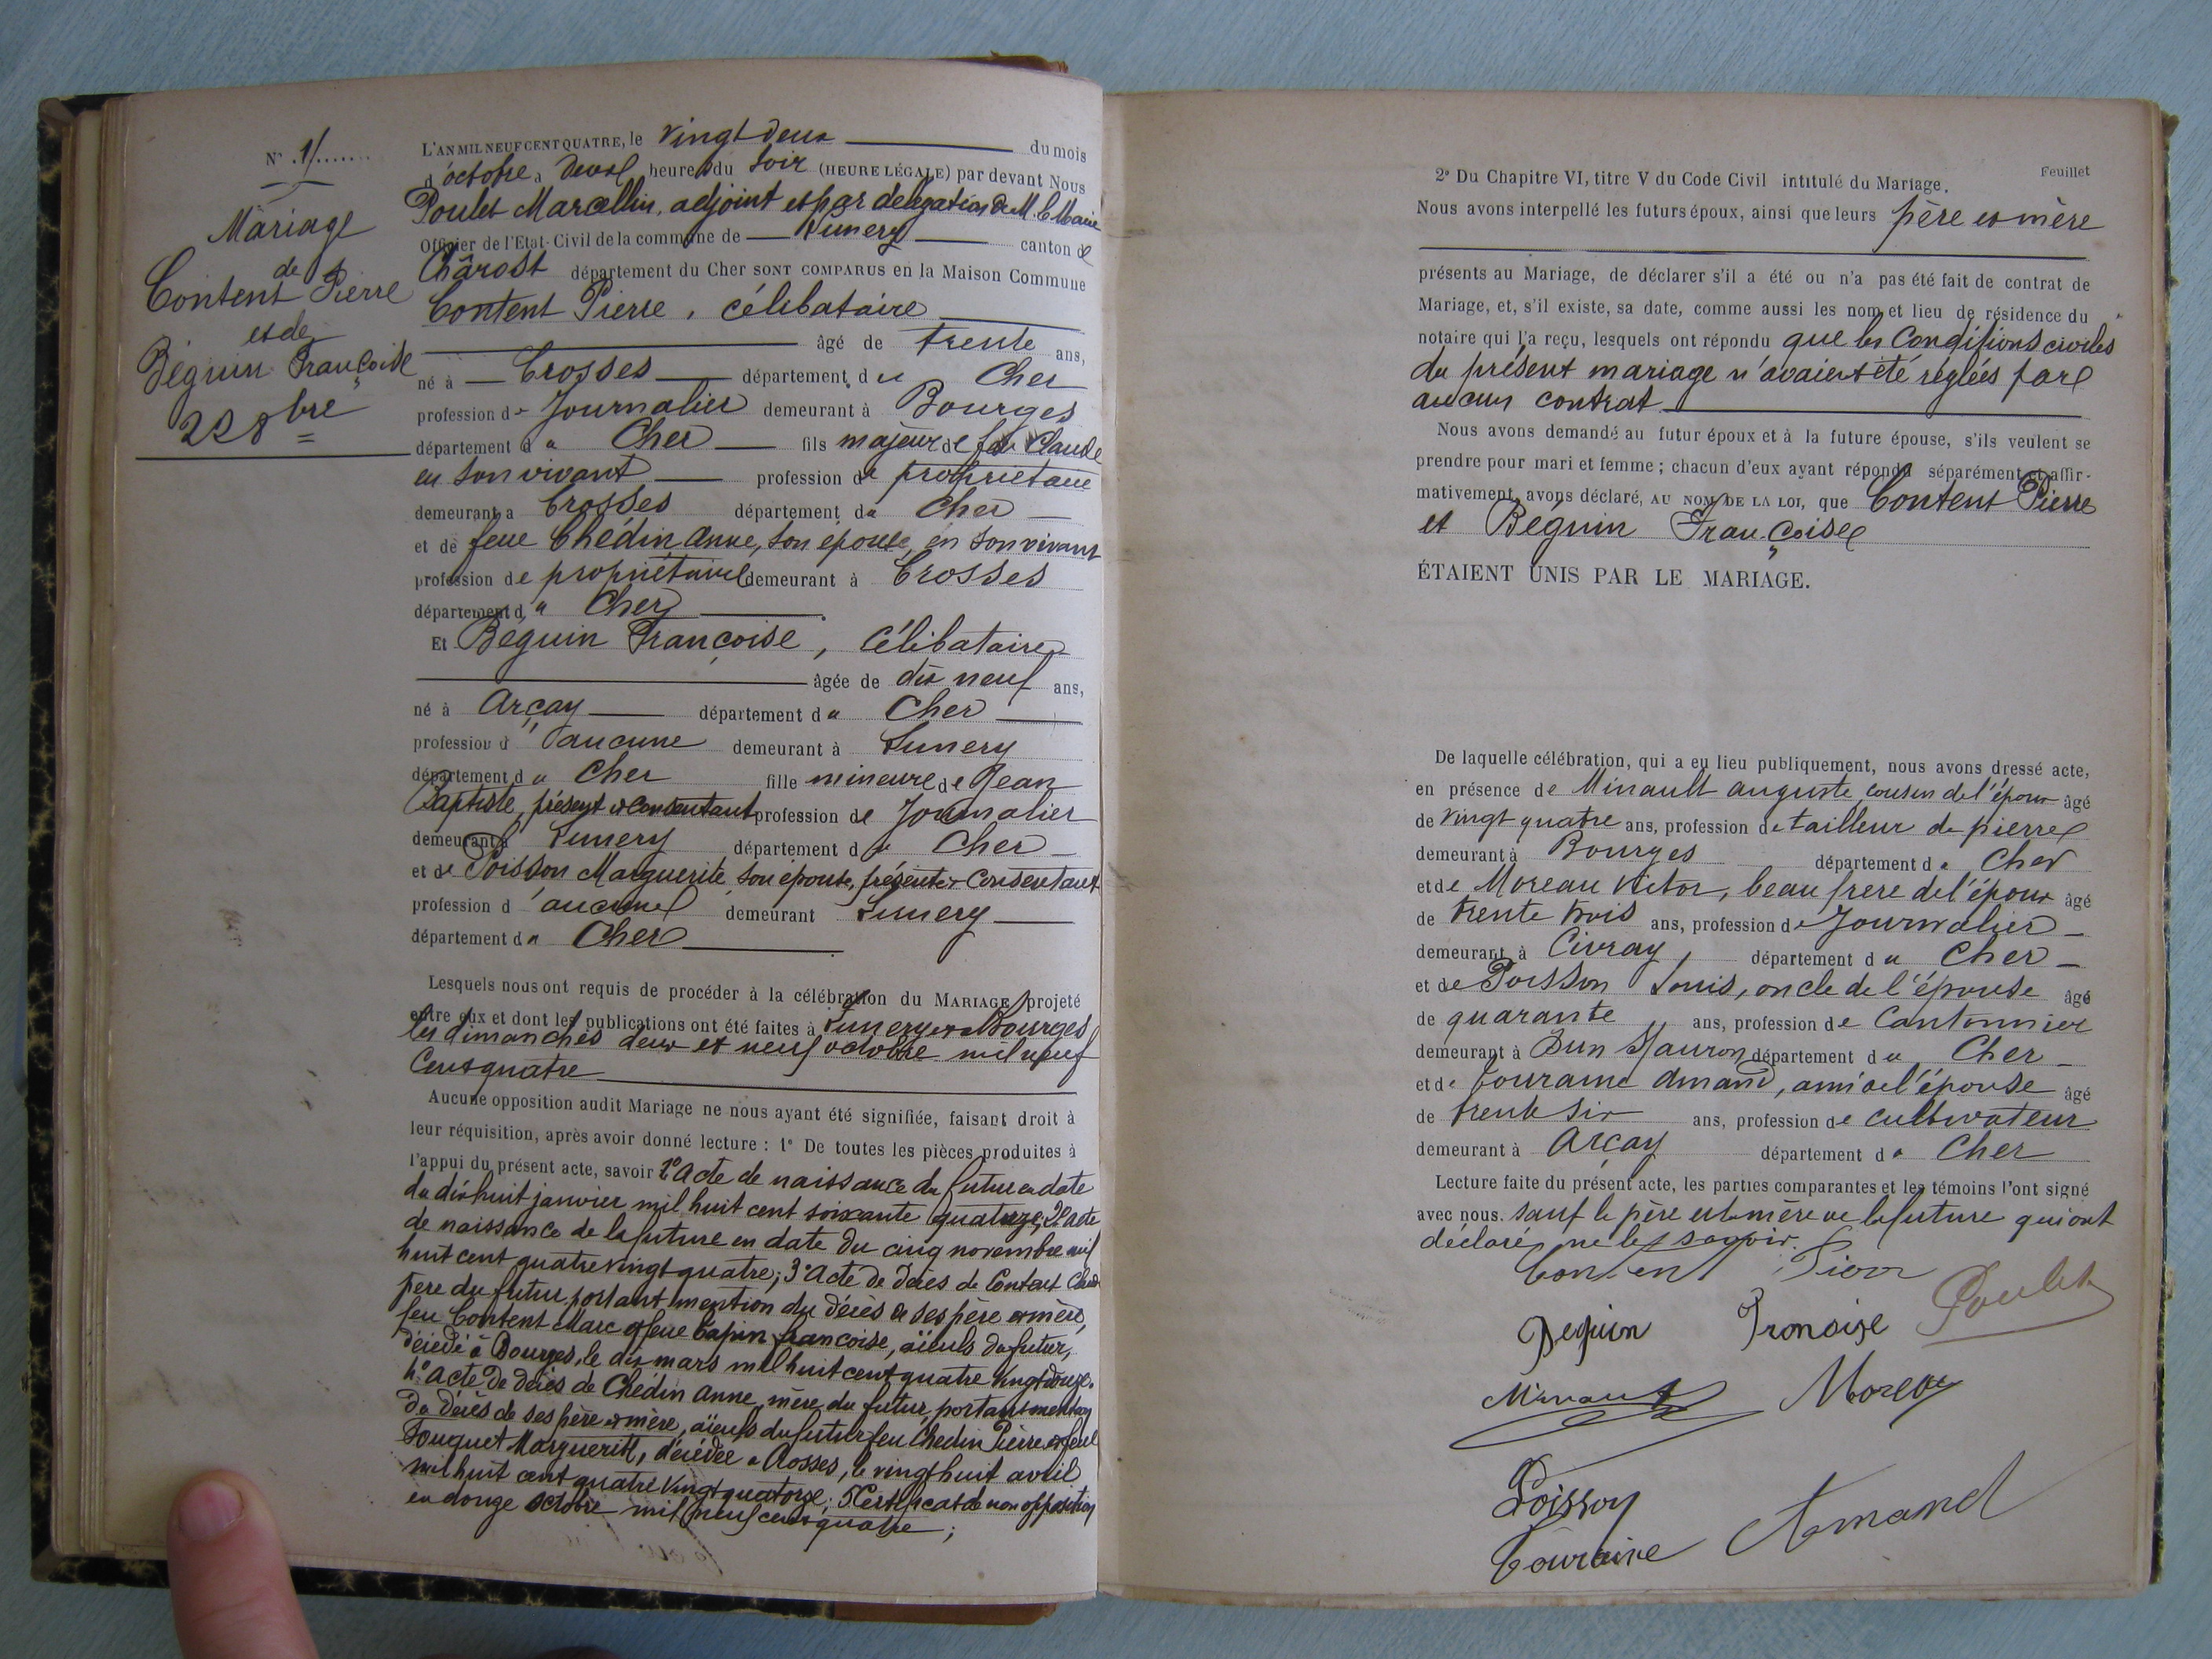 N° 11
Mariage
de
Content Pierre
et de
Béguin Françoise
22 8bre
L'AN MIL NEUF CENT QUATRE, le vingt deux du mois
d'octobre à deux heures du soir (HEURE LÉGALE) par devant Nous
Poulet Marcellin, adjoint et par délégation de M. le Maire
Officier de l'Etat-Civil de la commune de Lunery canton de
Chârost département du Cher SONT COMPARUS en la Maison Commune
Content Pierre, célibataire
âgé de trente ans,
né à Crosses département du Cher
profession de Journalier demeurant à Bourges
département du Cher fils majeur de feu Claude
en son vivant profession de propriétaire
demeurant à Crosses département du Cher
et de feue Chédin Anne, son épouse, en son vivant
profession de propriétaire demeurant à Crosses
département du Cher
Et Béguin Françoise, célibataire
âgée de dix neuf ans,
né à Arçay département du Cher
profession d'aucune demeurant à Lunery
département du Cher fille mineure de Jean
Baptiste, présent et consentant profession de Journalier
demeurant à Lunery département du Cher
et de Poisson Marguerite, son épouse, présente et consentant
profession d'aucune demeurant Lunery
département du Cher
Lesquels nous ont requis de procéder à la célébration du MARIAGE projeté
entre eux et dont les publications ont été faites à Lunery et à Bourges
les dimanches deux et neuf octobre mil neuf
cent quatre
Aucune opposition audit Mariage ne nous ayant été signifiée, faisant droit à
leur réquisition, après avoir donné lecture : 1° De toutes les pièces produites à
l'appui du présent acte, savoir 1° acte de naissance du futur en date
du dix huit janvier mil huit cent soixante quatorze; 2° acte
de naissance de la future en date du cinq novembre mil
huit cent quatre vingt quatre; 3° acte de décès de Content Claude
père du futur, portant mention du décès de ses père et mère,
feu Content Marc et feue Capin françoise, aïeuls du futur,
décédé à Bourges, le dix mars mil huit cent quatre vingt douze.
4° acte de décès de Chédin Anne, mère du futur, portant mention
du décès de ses père et mère, aïeuls du futur feu Chedin Pierre et feue
Fouquet Marguerite, décédée à Crosses, le vingt huit avril
mil huit cent quatre vingt quatorze; 5° Certificat de non opposition
en douze octobre mil neuf cent quatre;
Feuillet
2° Du Chapitre VI, titre V du Code Civil intitulé du Mariage.
Nous avons interpellé les futurs époux, ainsi que leurs père et mère
présents au Mariage, de déclarer s'il a été ou n'a pas été fait de contrat de
Mariage, et, s'il existe, sa date, comme aussi les nom et lieu de résidence du
notaire qui l'a reçu, lesquels ont répondu que les conditions civiles
du présent mariage n'avaient été réglées par
aucun contrat
Nous avons demandé au futur époux et à la future épouse, s'ils veulent se
prendre pour mari et femme ; chacun d'eux ayant répondu séparément et affir-
mativement, avons déclaré, AU NOM DE LA LOI, que Content Pierre
et Béguin Françoise
ÉTAIENT UNIS PAR LE MARIAGE.
De laquelle célébration, qui a eu lieu publiquement, nous avons dressé acte,
en présence de Minault auguste, cousin de l'époux âgé
de vingt quatre ans, profession de tailleur de pierre
demeurant à Bourges département du Cher
et de Moreau Victor, beau frere de l'époux âgé
de trente trois ans, profession de Journalier
demeurant à Civray département du Cher
et de Poisson Louis, oncle de l'épouse âgé
de quarante ans, profession de Cantonnier
demeurant à Dun s/auron département du Cher
et de Touraine Amand, ami de l'épouse âgé
de trente six ans, profession de cultivateur
demeurant à Arçay département du Cher
Lecture faite du présent acte, les parties comparantes et les témoins l'ont signé
avec nous. sauf le père et la mère de la future qui ont
déclaré ne le savoir.
Content Pierr
Poulet
Beguin Fransoise
Minault Moreau
Poisson
Touraine Amand